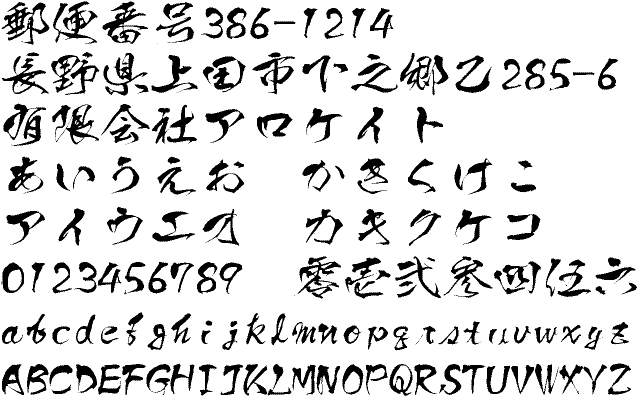 郵便番号386-1214
長野県上田市下之郷乙285-6
有限会社アロケイト
あいうえお　かきくけこ
アイウエオ　カキクケコ
0123456789　零壱弐参四伍六
abcdefghijklmnopqrstuvwxyz
ABCDEFGHIJKLMNOPQRSTUVWXYZ